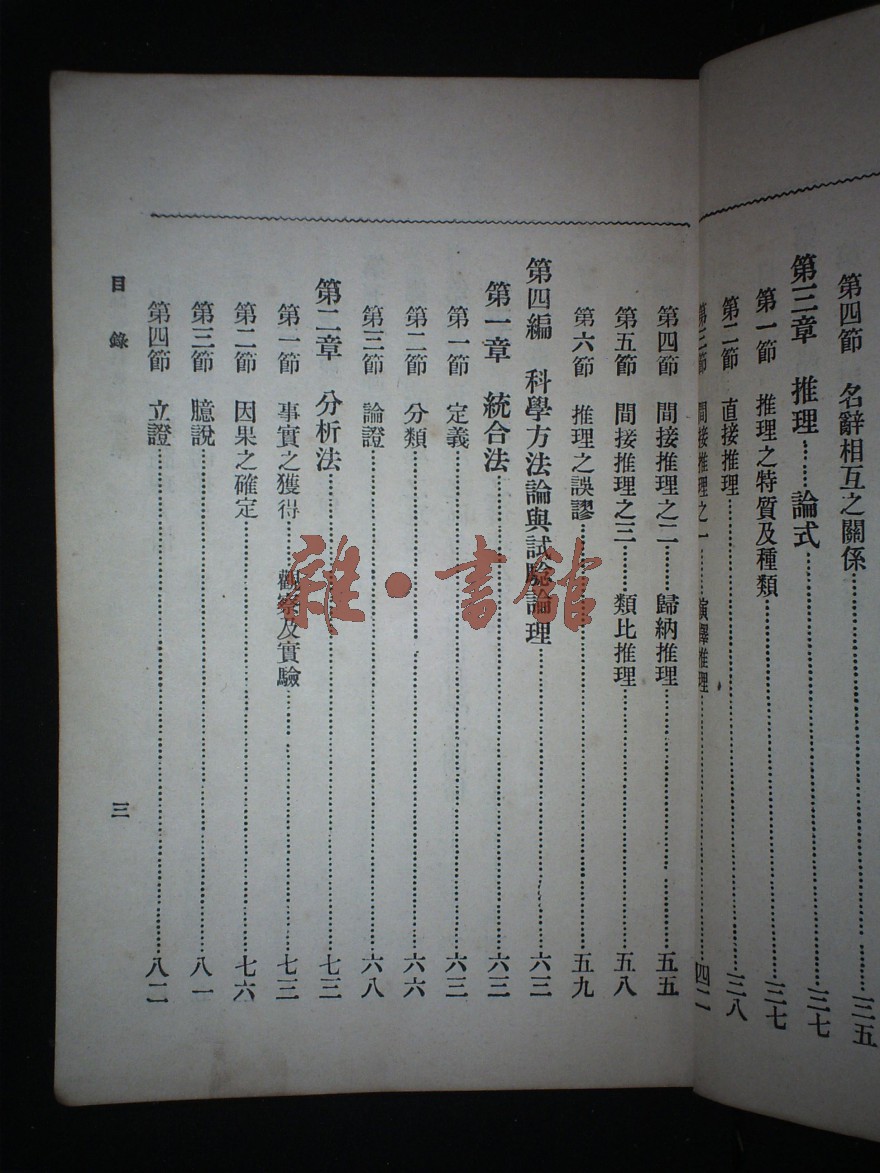 第四節　名辭相互之關係……三五
第三章　推理……論式……三七
第一節　推理之特質及種類……三七
第二節　直接推理……三八
第三節　間接推理之一……演繹推理……四二
第四節　間接推理之二……歸納推理……五五
第五節　間接推理之三……類比推理……五八
第六節　推理之誤謬……五九
第四編　科學方法論與試驗論理……六三
第一章　統合法……六三
第一節　定義……六三
第二節　分類……六六
第三節　論證……六八
第二章　分析法……七三
第一節　事實之獲得……觀察及實驗……七三
第二節　因果之確定……七六
第三節　臆說……八一
第四節　立證……八二
目錄　三
雜·書館